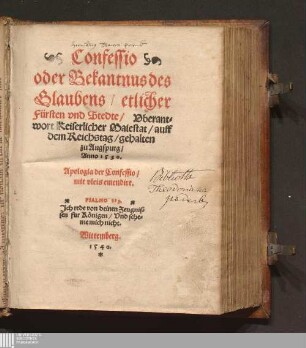 Confessio
oder Bekantnus des
Glaubens / etlicher
Fürsten vnd Stedte / Vberant-
wort Keiserlicher Maiestat / auff
dem Reichstag / gehalten
zu Augspurg /
Anno 1530.
Apologia der Confessio /
mit vleis emendirt.
PSALMO 119.
Ich rede von deinen Zeugnis-
sen fur Königen / Vnd sche-
me mich nicht.
Wittemberg.
1540.